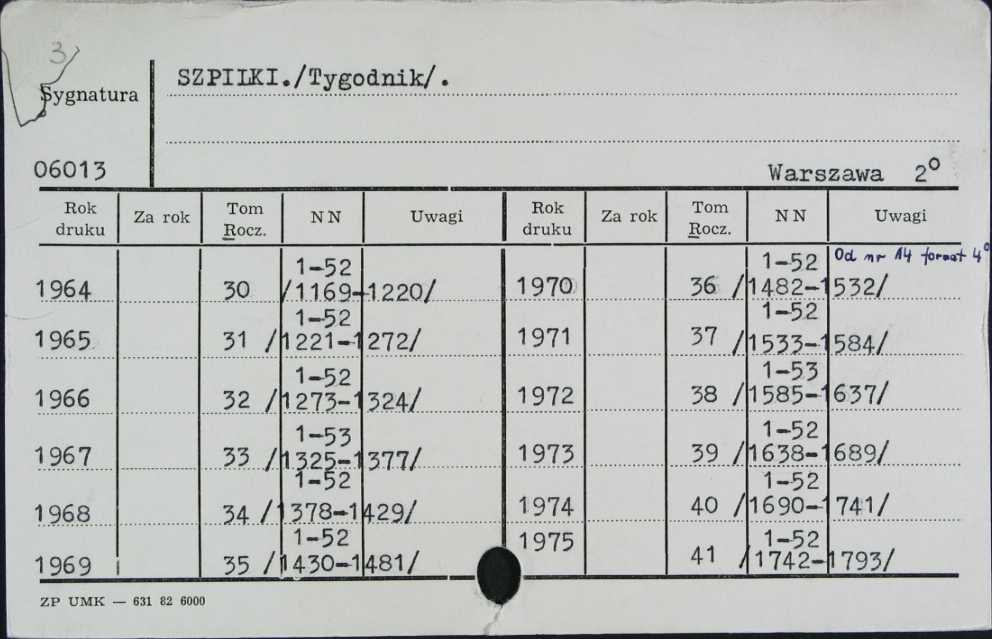 3
SZPILKI./Tygodnik/.
Sygnatura
06013
Warszawa 2º
Rok druku Za rok Tom Rocz. NN Uwagi Rok druku Za rok Tom Rocz. NN Uwagi
1964 30 1-52 /1169-1220/
1965 31 1-52 /1221-1272/
1966 32 1-52 /1273-1324/
1967 33 1-53 /1325-1377/
1968 34 1-52 /1378-1429/
1969 35 1-52 /1430-1481/
1970 36 1-52 /1482-1532/ Od nr 14 format 4º
1971 37 1-52 /1533-1584/
1972 38 1-53 /1585-1637/
1973 39 1-52 /1638-1689/
1974 40 1-52 /1690-1741/
1975 41 1-52 /1742-1793/
ZP UMK — 631 82 6000